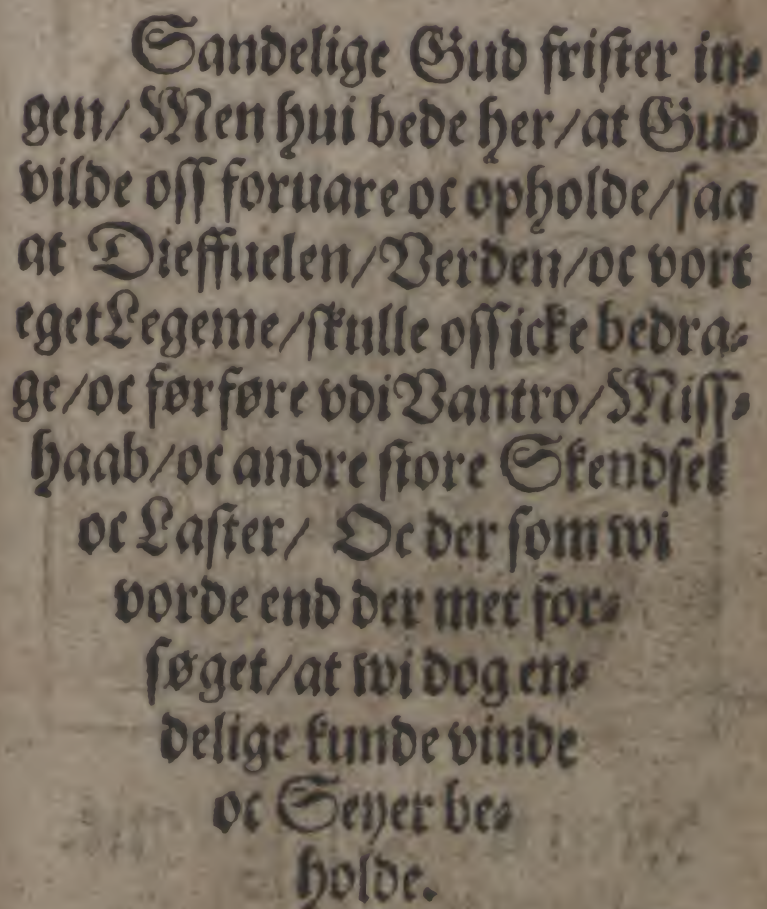 Sandelige Gud frister in⸗
gen/ Men hui bede her/ at Gud
vilde oss foruare oc opholde/ saa
at Dieffuelen/ Verden/ oc vort
eget Legeme/ skulle oss icke bedra⸗
ge/ oc førføre vdi Vantro/ Miss⸗
haab/ oc andre store Skendsel
oc Laster/ Oc der som wi
vorde end der met for⸗
søget/ at wi dog en⸗
delige kunde vinde
oc Seyer be⸗
holde.